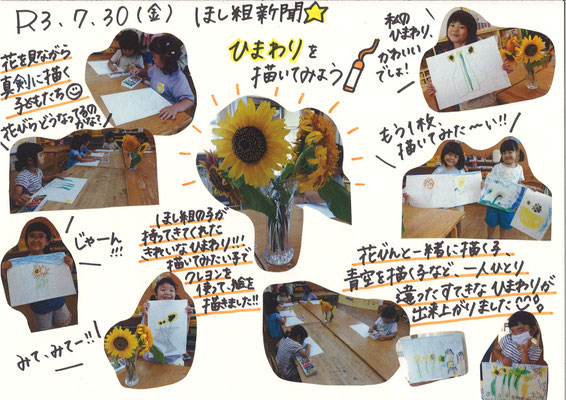 R3.7.30(金) ほし組新聞☆
ひまわりを
描いてみよう
花を見ながら
真剣に描く
子どもたち
花びらどうなってるの
かな?
私の
ひまわり、
かわいい
でしょ!
もう1枚、
描いてみた〜い!!
じゃーん!!!
ほし組の子が
持ってきてくれた
きれいなひまわり!!!
描いてみたい子で
クレヨンを
使って、絵を
描きました!!
みて、みてー!!
花びんと一緒に描く子、
青空を描く子など、一人ひとり
違ったすてきなひまわりが
出来上がりました